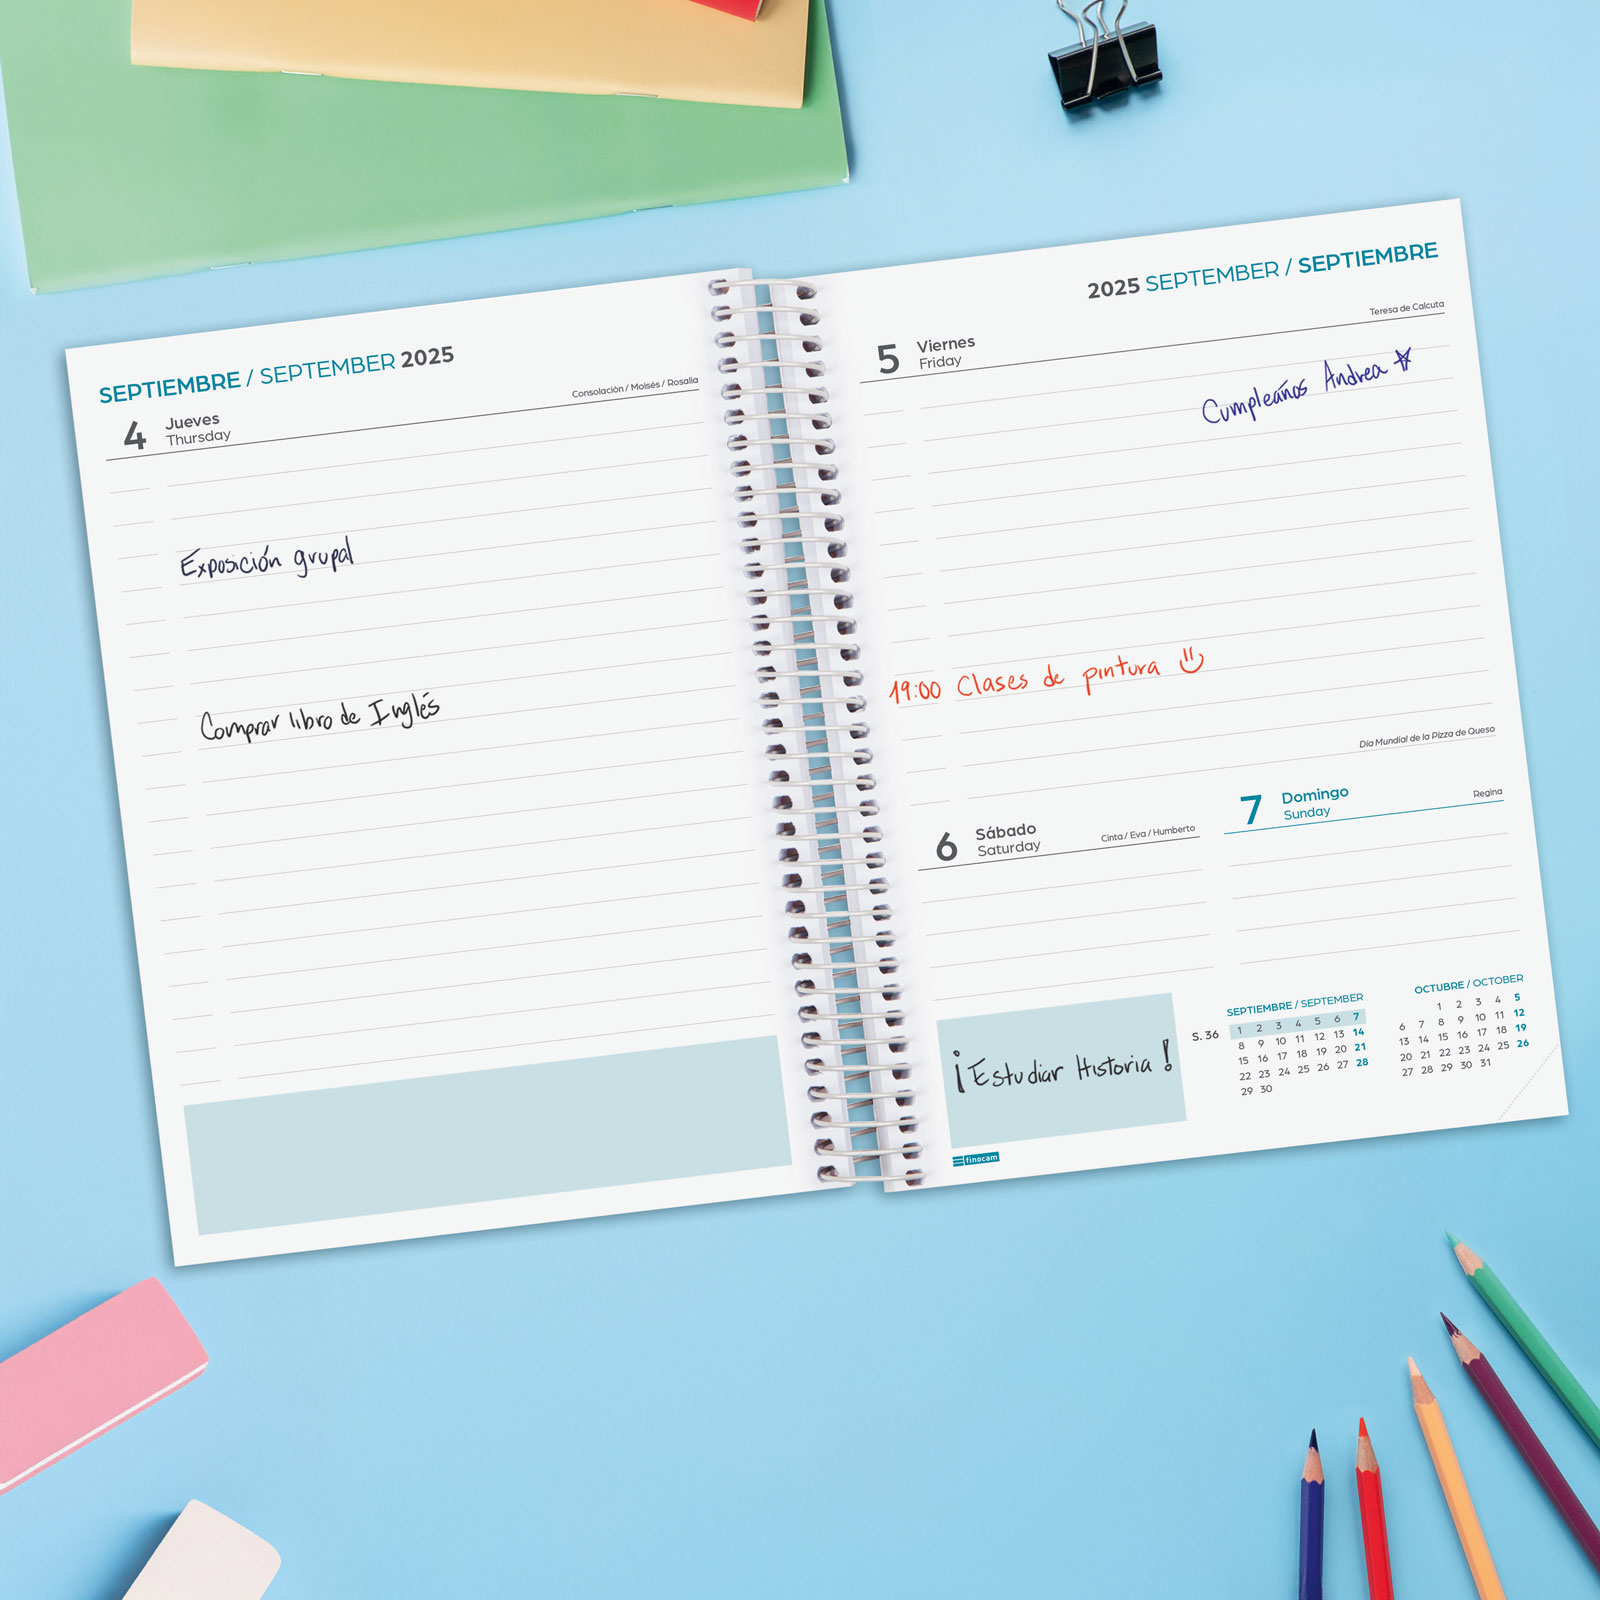 SEPTIEMBRE / SEPTEMBER 2025
4 Jueves
Thursday
Consolación / Moisés / Rosalia
Exposición grupal
Comprar libro de Inglés
2025 SEPTEMBER / SEPTIEMBRE
5 Viernes
Friday
Teresa de Calcuta
Cumpleaños Andrea
19:00 Clases de pintura
Día Mundial de la Pizza de Queso
6 Sábado
Saturday
Cinta / Eva / Humberto
7 Domingo
Sunday
Regina
¡Estudiar Historia!
S. 36
SEPTIEMBRE / SEPTEMBER
1 2 3 4 5 6 7
8 9 10 11 12 13 14
15 16 17 18 19 20 21
22 23 24 25 26 27 28
29 30
OCTUBRE / OCTOBER
1 2 3 4 5
6 7 8 9 10 11 12
13 14 15 16 17 18 19
20 21 22 23 24 25 26
27 28 29 30 31
finocam